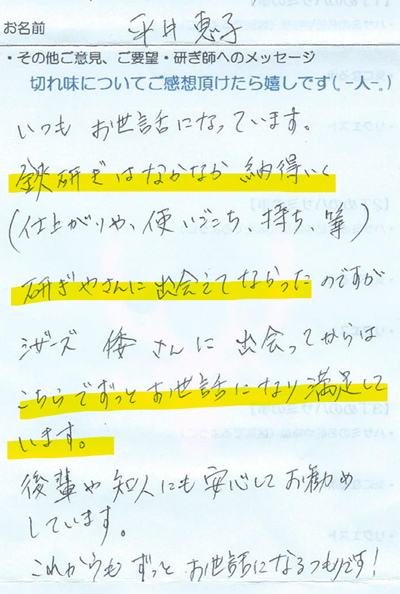 お名前 平井 恵子
・その他ご意見、ご要望・研ぎ師へのメッセージ
切れ味についてご感想頂けたら嬉しです(-人-)
いつも お世話になっています。
鋏研ぎはなかなか 納得いく
(仕上がりや、使いごこち、持ち、等)
研ぎやさんに出会えてなかったのですが
シザーズ 倭 さんに 出会ってからは
こちらでずっとお世話になり満足して
います。
後輩や知人にも安心してお勧め
しています。
これからも ずっと お世話になるつもりです!